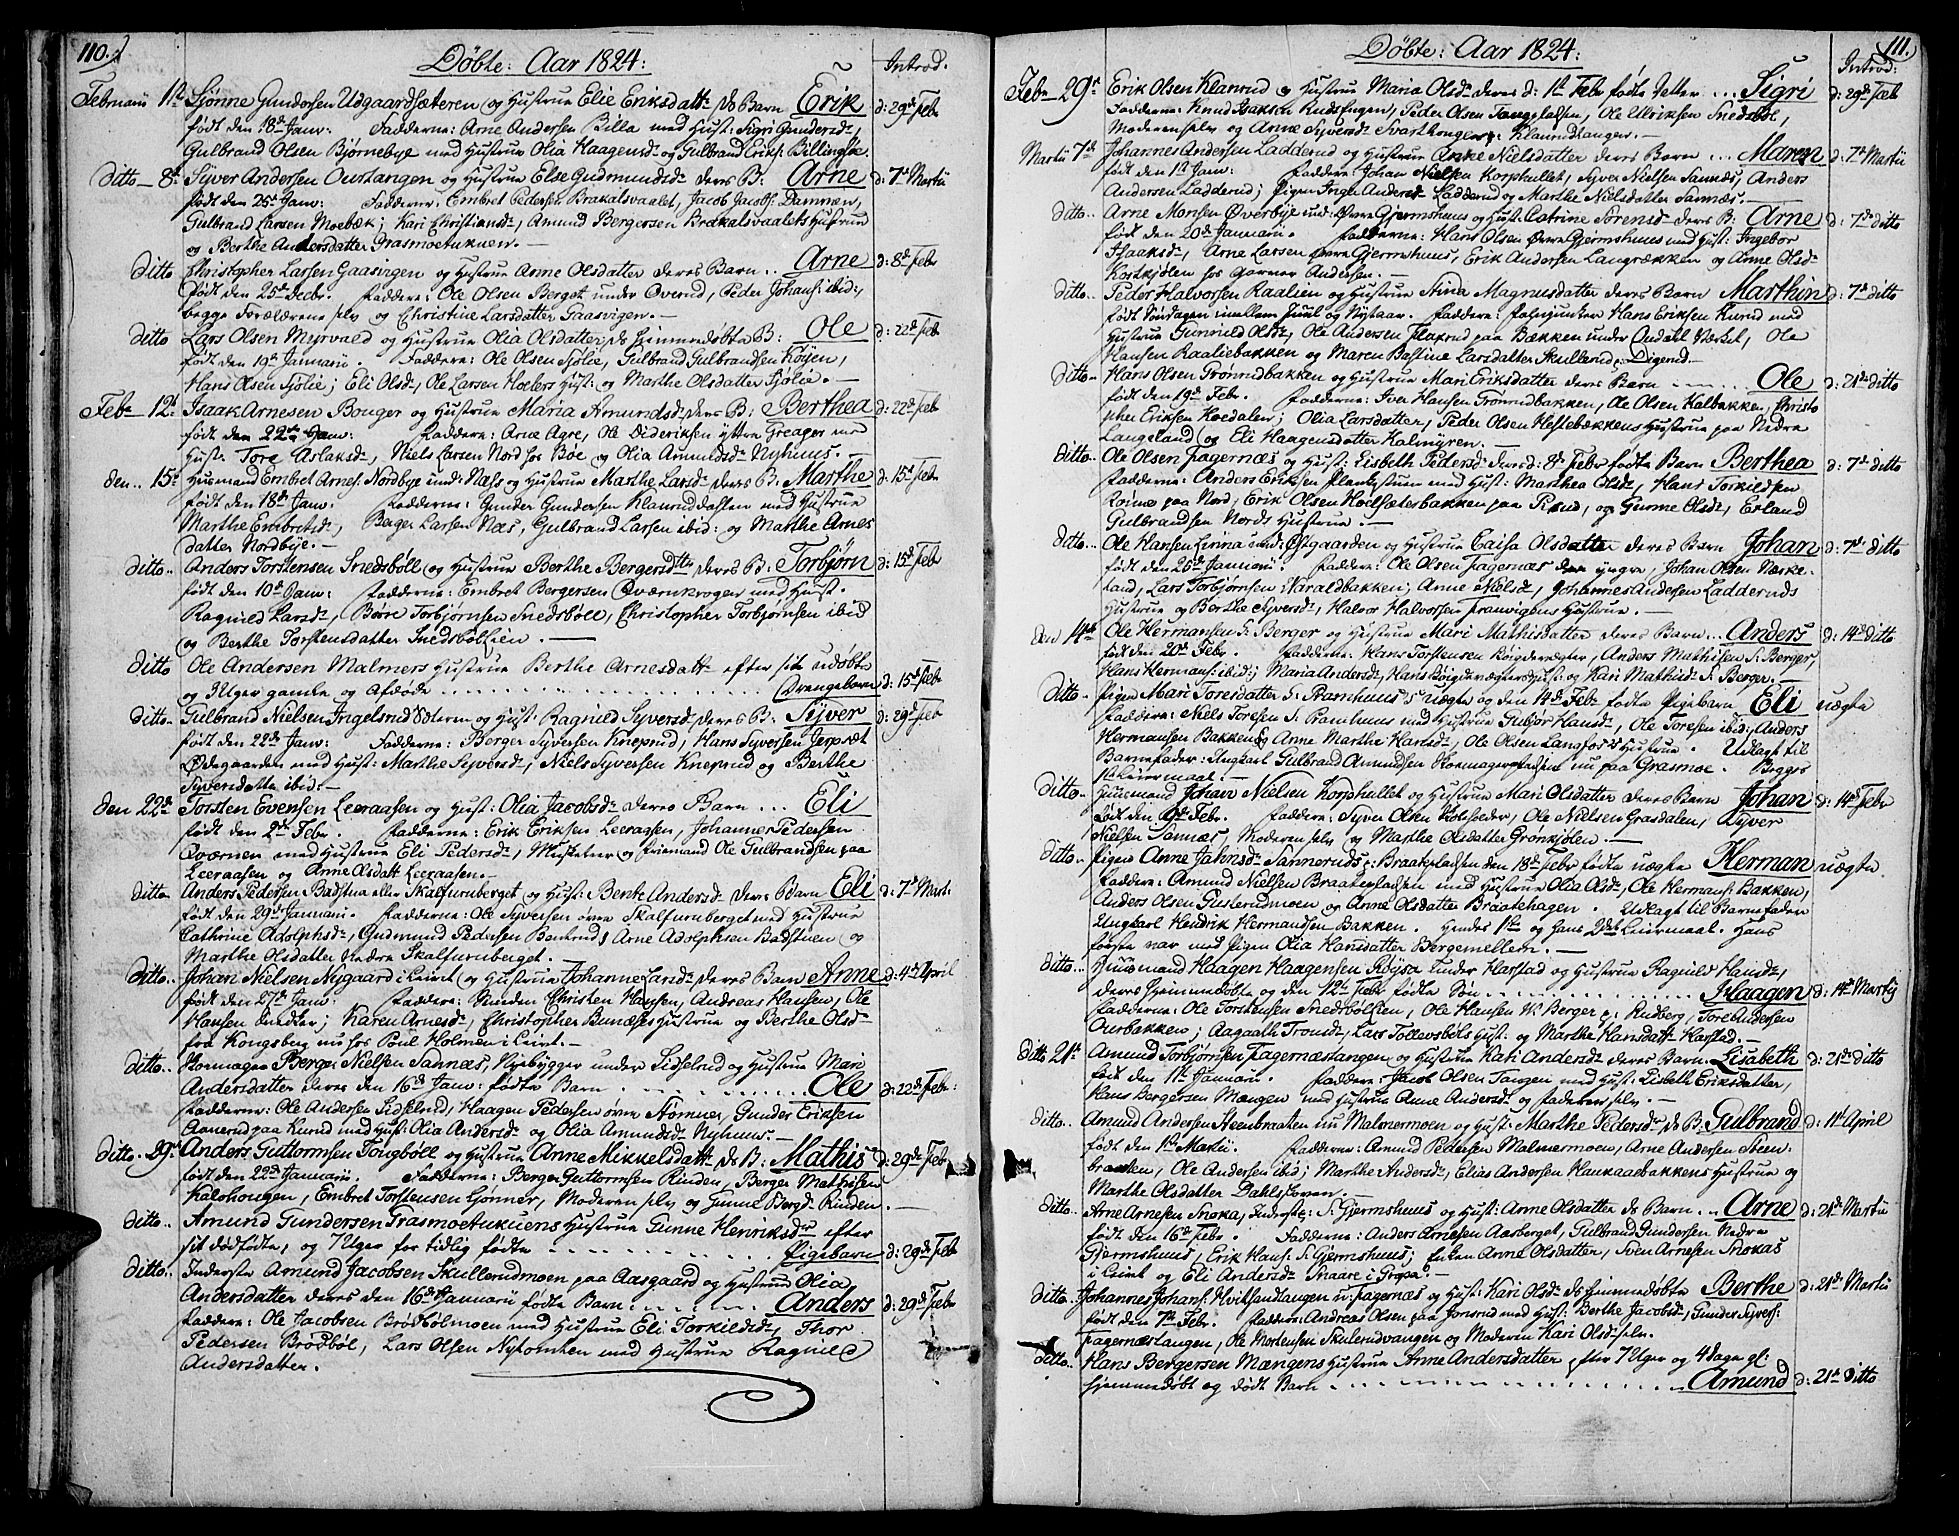 110.)
Døbte: Aar 1824:
Introd.
Februarii 1ste Sjønne Gundersen Udgaardsæteren og Hustrue Elie Eriksdattr Ds Barn Erik d: 29de Febr
født den 18de Janv: Fadderne: Arne Andersen Billa med Hust: Sigri Gundersdr,
Gulbrand Olsen Bjørnebye med Hustrue Olia Haagensdr og Gulbrand Eriks: Billingsøe
Ditto – 8de Syver Andersen Ourstangen og Hustrue Else Gudmundsdr deres B: Arne d: 7de Martii
født den 25de Janv: Fadderne: Embret Pedersen Brakalsvaalet, Jacob Jacobs: Dammen,
Gulbrand Larsen Moebæk; Kari Christiansdr, Amund Bergersen Brakalsvaalets Hustrue
og Berthe Andersdatter Grasmoetukuen.
Ditto Christopher Larsen Gaasvigen og Hustrue Anne Olsdatter deres Barn .. Arne d: 8de Febr
født den 25de Decbr. Faddere: Ole Olsen Berget under Overud, Peder Johans: ibid:,
begge Forældrene selv og Christine Larsdatter Gaasvigen.
Ditto Lars Olsen Myrvold og Hustrue Olia Olsdatter Ds hjemmedøbte B: Ole d: 22de Febr
født den 19de Januarii. Fadderne: Ole Olsen Sjølie, Gulbrand Gulbrandsen Køyen,
Hans Olsen Sjølie; Eli Olsdr, Ole Larsen Hoelers Hust: og Marthe Olsdatter Sjølie.
Febr 12te Isaak Arnesen Bouger og Hustrue Maria Amundsdr deres B: Berthea d: 22de Febr
født den 22de Janv: Faddere: Arne Agre, Ole Dideriksen yttre Greager med
Hust: Tore Aslaksdr, Niels Larsen Nord hos Boe og Olia Amundsdr Nyhuus.
den.. 15de Husmand Embret Arnes: Nordbye und: Næss og Hustrue Marthe Larsdr deres B: Marthe d: 15de Febr
født den 18de Janv: Faddere: Gunder Gundersen Klanruddahlen med Hustrue
Marthe Embretsdr, Berger Larsen Næs, Gulbrand Larsen ibid: og Marthe Arnes
datter Nordbye.
Ditto.. Anders Torstensen Snedsbøll og Hustrue Berthe Bergersdttr deres B: Torbjørn d: 15de Febr
født den 10de Janv: Faddere: Embret Bergersen Qværnkrogen med Hust.
Ragnild Larsdr, Børre Torbjørnsen Snedsbøll, Christopher Torbjørnsen ibid
og Berthe Torstensdatter Snedsbøllien.
Ditto Ole Andersen Malmers Hustrue Berthe Arnesdattr efter sit udøbte
og Uger gamle og Afdøde . . . . . Drengebarn d: 15de Febr
Ditto.. Gulbrand Nielsen Ingelsrud Ødern og Hust: Ragnild Syversdr deres B: Syver d: 29de Febr
født den 22de Janv: Fadderne: Berger Syversen Kneprud, Hans Syversen Jerpsæt
Ødegaarden med Hust: Marthe Syversdr, Niels Syversen Kneprud og Berthe
Syversdatter ibid:
den 22de Torsten Evensen Leeraasen og Hust: Olia Jacobsdr deres Barn ... Eli
født den 2de Febr. Fadderne: Erik Eriksen Leeraasen, Johannes Pedersen
Qværnen med Hustrue Eli Pedersdr, Musketeer og Friemand Ole Gulbrandsen paa
Leeraasen og Anne Olsdatt Leeraasen.
Ditto Anders Pedersen Badstua eller Skalfurnberget og Hust: Bente Andersdr deres Barn Eli d: 7de Mart:
født den 29de Januarii. Faddere: Ole Syversen øvre Skalfurnberget med Hustrue
Cathrine Adolphsdr, Gudmund Pedersen Benterud, Arne Adolphsen Badstuen og
Marthe Olsdatter nedre Skalfurnberget.
Ditto.. Johan Nielsen Nygaard i Leiret og Hustrue Johanne Larsdr deres Barn Anne d: 4de April
født den 27de Janv: Faddere: Smeden Christen Hansen, Andreas Hansen, Ole
Hansen Snedker; Karen Arnesdr, Christopher Bunæses Hustrue og Berthe Olsdr
fra Kongsberg nu hos Poul Holmen i Leiret.
Ditto.. Skomager Berger Nielsen Sannæs, Nyebygger under Lidselrud og Hustrue Mari
Andersdatter deres den 16de Janv: fødte Barn . . . . Ole d: 22de Febr:
Fadderne: Ole Andersen Lidselrud, Haagen Pedersen øvre Stømner, Gunder Eriksen
Aanerud paa Kurud med Hust: Olia Andersdr og Olia Amundsdr Nyhuus.
Ditto.. 29de Anders Guttormsen Tougbøll og Hustrue Anne Mikkelsdattr Ds B: Mathis d: 29de Febr
født den 22de Januarii. Fadderne: Berger Guttormsen Rinden, Berger Mathisen
Kalshougen, Embret Torstensen Gonner, Moderen selv og Gunne Bergdr Rinden.
Ditto.. Amund Gundersen Grasmoetukuens Hustrue Gunne Henriksdr efter
sit dødfødte, og 7 Uger for tidlig fødte . . . . Pigebarn d: 29de Febr
Ditto.. Inderste Amund Jacobsen Skullerudmoen paa Aasgaard og Hustrue Olia
Andersdatter deres den 16de Januarii fødte Barn . . . . Anders d: 29de Febr
Faddere: Ole Jacobsen Brødbølmoen med Hustrue Eli Torkildsdr, Thor
Pedersen Brødbøl, Lars Olsen Nytomten med Hustrue Ragnild
Andersdatter.
111.
Døbte: Aar 1824:
Introd:
Febr 29de Erik Olsen Klanrud og Hustrue Maria Olsdr deres d: 1ste Febr fødte Detter ... Sigri d: 29de Febr
Fadderne: Knud Isakson Rudshugen, Peder Olsen Tangepladsen, Ole Ulriksen Snedsbøl,
Moderen selv og Anne Syversdr Svarthougen p: Klanrudtanger.
Martii 7de Johannes Andersen Ladderud og Hustrue Anne Nielsdatter deres Barn ... Maren d: 7de Martii
født den 1ste Janv: Faddere Johan Nielsen Korphullet, Syver Nielsen Sannæs, Anders
Andersen Ladderud; Pigen Inger Andersdr Ladderud og Marthe Nielsdatter Sannæs.
Ditto.. Arne Monsen Øverbye und: Øvre Gjermshuus og Hust: Catrine Sørensdr deres B: Arne d: 7de ditto
født den 20de Januarii. Fadderne: Hans Olsen Øvre Gjermshuus med Hust: Ingebor
Isaaksdr, Arne Larsen Øvre Gjermshuus, Erik Andersen Langrækken og Anne Olsdr
Kostkjølen hos Garver Andersen.
Ditto.. Peder Halvorsen Raalien og Hustrue Stina Magnusdatter deres Barn Marthin d: 7de ditto
født Søndagen imellem Juul og Nytaar. Faddere: Sehnjunker Hans Eriksen Kurud med
Hustrue Gunnild Olsdr, Ole Andersen Flaxrud paa Bækken under Oudahl Værket, Ole
Hansen Raaliebakken og Maren Bastine Larsdatter Skullerud; Digerud.
Ditto.. Hans Olsen Trønnudbakken og Hustrue Mari Eriksdatter deres Barn — — Ole d: 21de ditto
født den 19de Febr. Fadderne: Iver Hansen Trønnudbakken, Ole Olsen Kalbakken, Christo
pher Eriksen Hoedalen; Olia Larsdatter, Peder Olsen Hestebækkens Hustrue paa Nedre
Langeland og Eli Haagensdatter Kalmyren.
Ditto.. Ole Olsen Fagernæs og Hust: Lisbeth Pedersdr deres d: 8de Febr fødte Barn Berthea d: 7de ditto
Fadderne: Anders Eriksen Plantestuen med Hust: Marthea Olsdr, Hans Torkildsen
Roinæ paa Nord; Erik Olsen Hoelsæterbakken paa Roud, og Gunne Olsdr, Erland
Gulbrandsen Nords Hustrue.
Ditto.. Ole Hansen Linna und: Østgaarden og Hustrue Caisa Olsdatter deres Barn Johan d: 7de ditto
født den 26de Januarii. Faddere: Ole Olsen Fagernæs den yngre, Johan Olsen Næske-
land, Lars Torbjørnsen Naraldbakken; Anne Nielsdr, Johannes Andersen Ladderuds
Hustrue og Berthe Syversdr, Halvor Halvorsen Franvigens Hustrue.
den 14de Ole Hermansen S: Berger og Hustrue Mari Mathisdatter deres Barn .. Anders d: 14de ditto
født den 20de Febr. Fadderne: Hans Torstensen Bøigdevægter, Anders Mathisen S: Berger,
Hans Hermans: ibid:; Maria Andersdr, Hans Bøigdevægters Hust: og Kari Mathisdr S: Berger.
Ditto.. Pigen Mari Toresdatter S: Pramhuus's uægte og den 14de Febr fødte Pigebarn Eli uægte
Faddere: Niels Toresen S: Pramhuus med Hustrue Gubjør Hansdr, Ole Toresen ibid:, Anders
Hermansen Bakken og Anne Marthe Hansdr, Ole Olsen Lansfoss's Hustrue. Udlagt til
Barnefader: Ungkarl Gulbrand Amundsen Skomagerpladsen nu paa Grasmoe. Begges
1ste Leiermaal.
Ditto.. Huusmand Johan Nielsen Korphullet og Hustrue Mari Olsdatter deres Barn Johan d: 14de Febr
født den 9de Febr. Faddere: Syver Olsen Kolsæder, Ole Nielsen Grasdalen, Syver
Nielsen Sannæs, Moderen selv og Marthe Olsdatter Grønkjølen.
Ditto.. Pigen Anne Jahnsdr Sannerud p: Braatepladsen den 18de Febr fødte uægte Herman uægte.
Faddere: Amund Nielsen Braatepladsen med Hustrue Olia Olsdr, Ole Hermans: Bakken,
Anders Olsen Guslerudmoen og Anne Olsdatter Braatehagen. Udlagt til Barnefader
Ungkarl Hendrik Hermansen Bakken. Hendes 1ste og Hans 2det Leiermaal. Hans
første var med Pigen Olia Hansdatter Bergemellem.
Ditto... Huusmand Haagen Haagensen Røysa under Harstad og Hustrue Ragnild Hansdr,
deres hjemmedøbte og den 12te Febr fødte Søn . . . . . Haagen d: 14de Martij
Fadderne: Ole Torstensen Snedsbøllien, Ole Hansen N. Berger p: Rudberg, Tore Andersen
Ourbakken; Aagaathe Tronsdr, Lars Tollevsbøls Hust: og Marthe Hansdatt Harstad.
Ditto 21de Amund Torbjørnsen Fagernæstangen og Hustrue Kari Andersdr deres Barn: Lisabeth d: 21de ditto
født den 11te Januarii. Faddere: Jacob Olsen Tangen med Hust: Lisbeth Eriksdatter,
Hans Bergersen Mængen med Hustrue Anne Andersdr og Faderen selv.
Ditto.. Amund Andersen Steenbraaten nu Malmermoen og Hust: Marthe Pedersdr Ds B: Gulbrand d: 11te April
født den 1ste Martii. Fadderne: Amund Pedersen Malmermoen, Arne Andersen Steen-
braaten, Ole Andersen ibid; Marthe Andersdr, Elias Andersen Haukaabakkens Hustrue og
Marthe Olsdatter Dahlstomen.
Ditto.. Arne Arnesen Snoka, Inderste S: Gjermshuus og Hust: Anne Olsdatter Ds Barn .. Arne d: 21de Martii
født den 16de Febr. Fadderne: Anders Arnesen Aasberget, Gulbrand Gundersen Nedre
Gjermshuus, Erik Hans: S: Gjermshuus; Enken Anne Olsdatter, Sven Arnesen Snokas
i Leiret og Eli Andersdr Snaare i Gropa.
Ditto.. Johannes Johans: Hvitsandtangen u: Fagernæs og Hust: Kari Olsdr Ds hjemmedøbte Berthe d: 21de Martii
født den 7de Febr. Faddere: Andreas Olsen paa Jonsrud med Hust: Berthe Jacobsdr, Gunder Syvers:
Fagernæstangen, Ole Mortensen Skulerudvangen og Moderen Kari Olsdr selv.
Ditto.. Hans Bergersen Mængens Hustrue Anne Andersdatter efter 7 Uger og 4 Dage gl:
hjemmedøbt og dødt Barn . . . . . Amund d: 21de Ditto